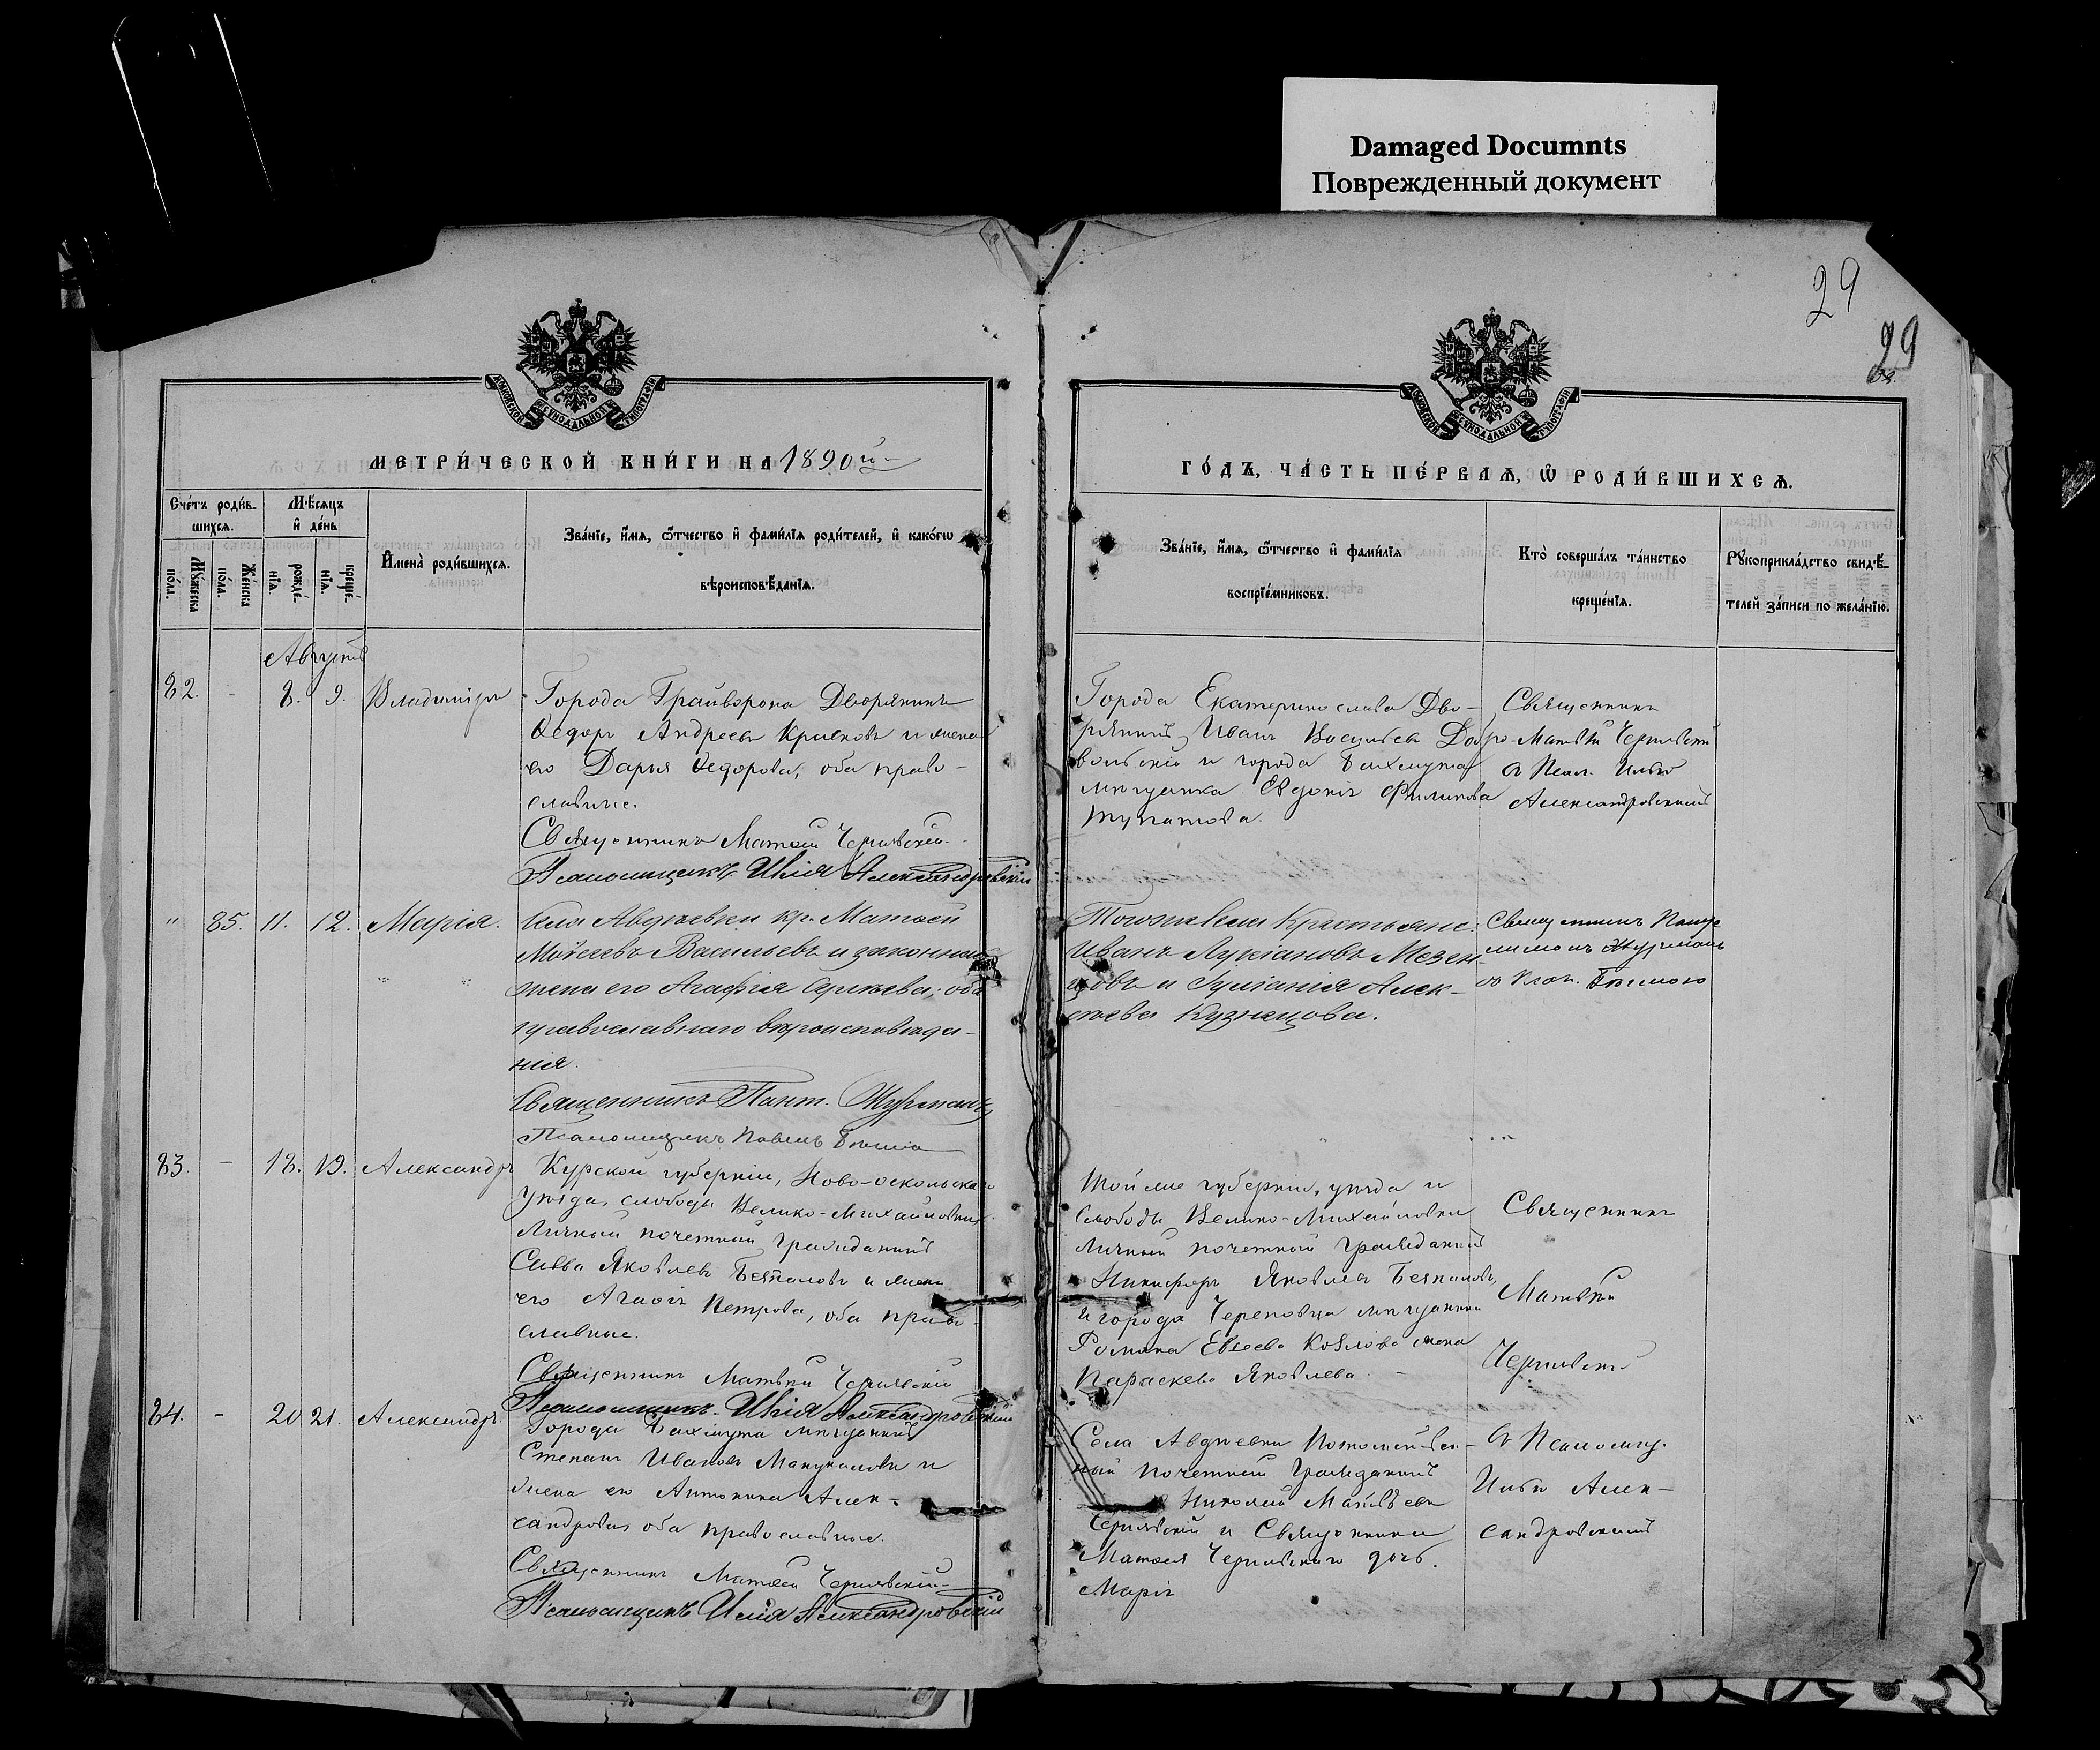 Damaged Documnts
Поврежденный документ
29
29
МОСКОВСКОЙ СУНОДАЛЬНОЙ ТИПОГРАФІИ
МОСКОВСКОЙ СУНОДАЛЬНОЙ ТИПОГРАФІИ
МЕТРИ́ЧЕСКОЙ КНИ́ГИ НА 1890й
ГО́ДЪ, ЧА́СТЬ ПЕ́РВАѦ, Ѡ РОДИ́ВШИХСѦ.
Сче́тъ роди́в-
шихсѧ.
Мꙋ́жеска по́ла.
Же́нска по́ла.
Мѣ́сѧцъ
и҆ де́нь
рожде́-нїѧ.
креще́-нїѧ.
И҆мена̀ роди́вшихсѧ.
Зва́нїе, и҆́мѧ, ѻ҆́тчество и҆ фами́лїѧ роди́телей, и҆ како́гѡ
вѣроисповѣ́данїѧ.
Зва́нїе, и҆́мѧ, ѻ҆́тчество и҆ фами́лїѧ
воспрїе́мниковъ.
Кто̀ соверша́лъ та́инство
креще́нїѧ.
Рꙋкоприкла́дство свидѣ́-
телей за́писи по жела́нїю.
Августъ
82. - 8. 9. Владиміръ
Города Грайворона Дворянинъ
Ѳедоръ Андреевъ и жена
его Дарья Ѳедорова, оба право-
славные.
Священникъ Матѳей Чернявскій.
Псаломщикъ Илія Александровскій
Города Екатеринослава Дво-
рянинъ Иванъ Васильевъ Добро-
вольскій и города Бахмута
мѣщанка Евдокія Филипова
Священникъ
Матвѣй Чернявскій
съ Псал. Иліею
Александровскимъ
" 85. 11. 12. Марія.
Села Авдѣевки кр. Матѳей
Моисеевъ Васильевъ и законная
жена его Агафія Сергѣева; оба
православнаго вѣроисповѣда-
нія.
Священникъ Пант. Журманъ
Псаломщикъ Павелъ
Тогоже села Крестьяне:
Иванъ Лукіановъ Мезен-
цовъ и Іуліанія Алек-
сѣева Кузнецова.
Священникъ Панте-
лимонъ Журманъ
съ Псал.
83. - 18. 19. Александръ
Курской губерніи, Ново-оскольскаго
уѣзда, слободы Велико-Михайловки
Личный почетный гражданинъ
Савва Яковлевъ Безпаловъ и жена
его Агаѳія Петрова, оба право-
славные.
Священникъ Матвѣй Чернявскій
Псаломщикъ Илія Александровскій
Той же губерніи, уѣзда и
слободы Велико-Михайловки
Личный почетный гражданинъ
Никифоръ Яковлевъ Безпаловъ
и города Череповца мѣщанина
Романа Евсеева Козлова жена
Параскева Яковлева.
Священникъ
Матвѣй
Чернявскій
84. - 20 21. Александръ.
Города Бахмута мѣщанинъ
Степанъ Ивановъ и
жена его Антонина Алек-
сандрова, оба православные.
Священникъ Матѳей Чернявскій
Псаломщикъ Илія Александровскій
Села Авдѣевки Потомствен-
ный почетный гражданинъ
Николай Матвѣевъ
Чернявскій и Священника
Матѳея Чернявскаго дочь.
Марія
съ Псаломщ.
Иліею Алек-
сандровскимъ